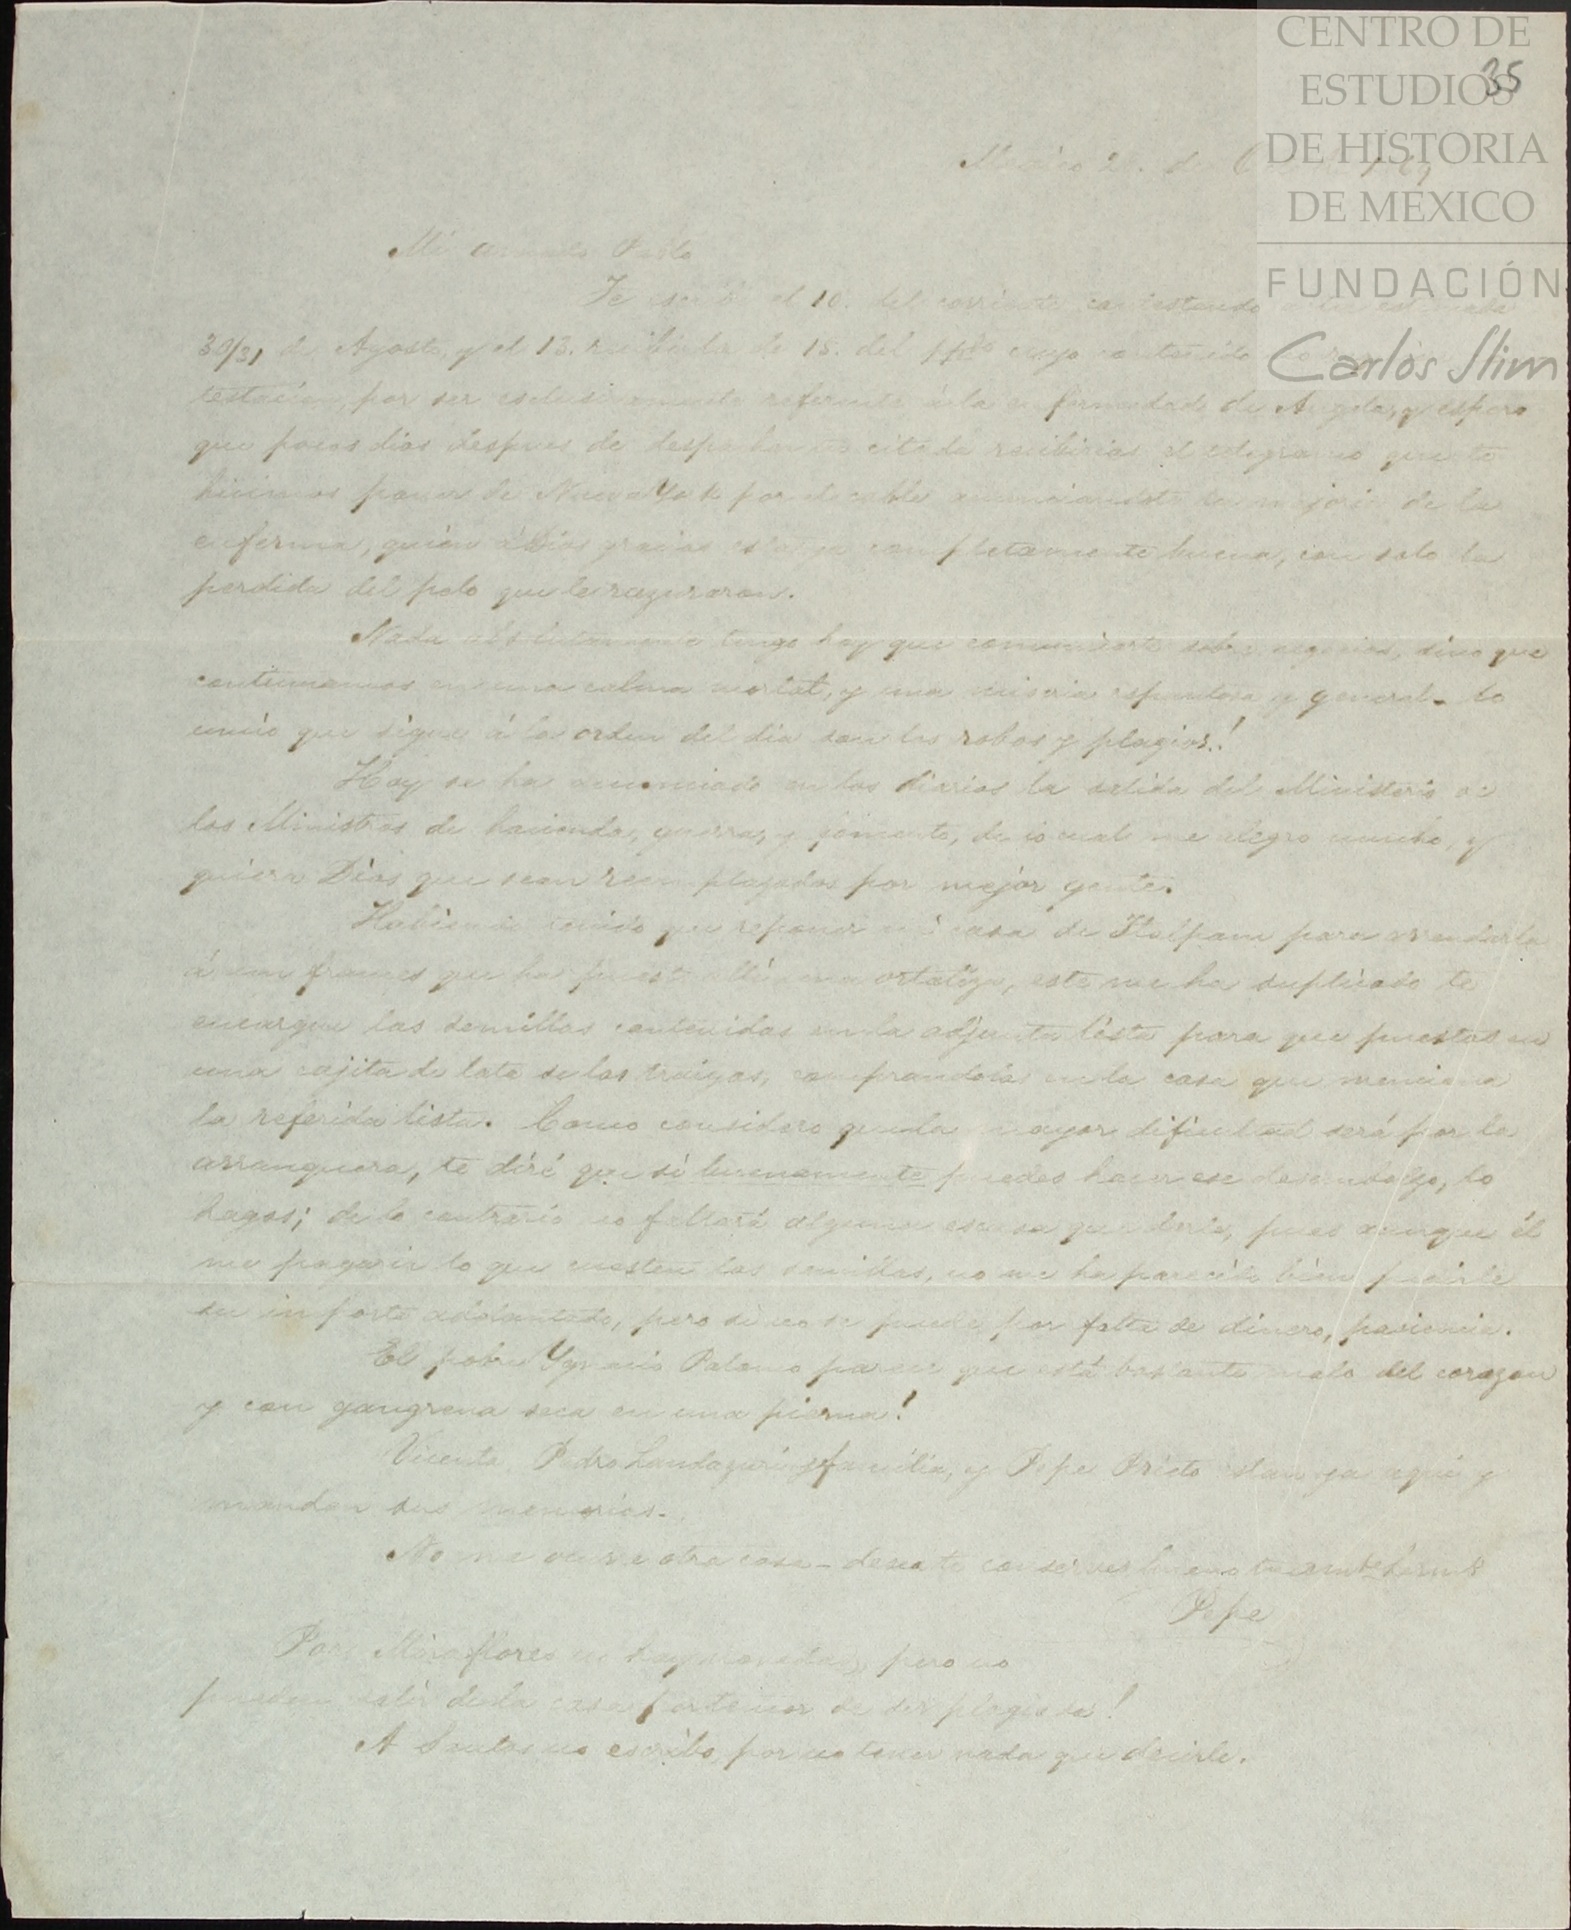 CENTRO DE
ESTUDIOS
DE HISTORIA
DE MÉXICO
FUNDACIÓN
Carlos Slim
35
Mexico 2 de
Mi
Te escribí el 10. del corriente contestando
30/31 de Agosto, y el 13. recibí la de 15. del ppdo cuyo contenido
testacion, por ser esclusivamente referente á la enfermedad de Angela, y espero
que pocos dias despues de despachar tu citada recibirias el telegrama que te
hicimos poner de Nueva York por el cable anunciandote la mejoria de la
enferma, quien á Dios gracias está ya completamente buena, con solo la
perdida del pelo que le rasuraron.
Nada absolutamente tengo hoy que comunicarte sobre negocios, sino que
continuamos en una calma mortal, y una miseria espantosa y general. lo
unico que sigue á la orden del dia son los robos y plagios.!
Hoy se ha anunciado en los diarios la salida del Ministerio de
los Ministros de hacienda, guerra, y fomento, de lo cual me alegro mucho, y
quiera Dios que sean reemplazados por mejor gente.
Habiendo tenido que reponer mi casa de Tlalpam para arrendarla
á un frances que ha puesto allí una ortaliza, este me ha suplicado te
encargue las semillas contenidas en la adjunta lista para que puestas en
una cajita de lata se las traigas, comprandolas en la casa que menciona
la referida lista. Como considero que la mayor dificultad será por la
arranquera, te diré que si buenamente puedes hacer ese desembolso, lo
hagas; de lo contrario no faltará alguna escusa que darle, pues aunque él
me pagaria lo que cuesten las semillas, no me ha parecido bien pedirle
su importe adelantado, pero si no se puede por falta de dinero, paciencia.
El pobre Ygnacio Palomo parece que está bastante malo del corazon
y con gangrena seca en una pierna!
Vicenta, Pedro Landazuri y familia, y Pepe Prieto estan ya aqui y
mandan sus memorias.
No me ocurre otra cosa - desea te conserves bueno tu amte herm°
Pepe
Por Miraflores no hay novedad, pero no
pueden salir de la casa por temor de ser plagiados!
A no escribo, por no tener nada que decirle.